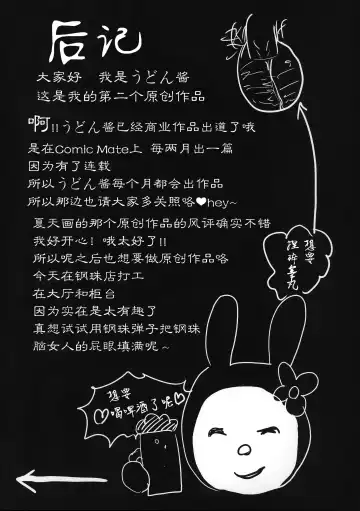 后记
大家好　我是うどん酱
这是我的第二个原创作品
啊!!うどん酱已经商业作品出道了哦
是在Comic Mate上 每两月出一篇
因为有了连载
所以うどん酱每个月都会出作品
所以那边也请大家多关照咯♥hey~
夏天画的那个原创作品的风评确实不错
我好开心！哦太好了!!
所以呢之后也想要做原创作品咯
今天在钢珠店打工
在大厅和柜台
因为实在是太有趣了
真想试试用钢珠弹子把钢珠
脑女人的屁眼填满呢～
想要
捏碎睾丸
想要
♡喝啤酒了呢♡